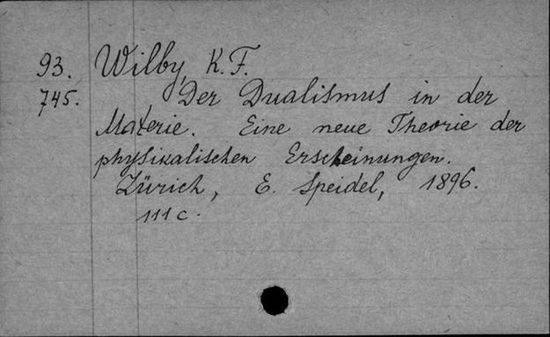 93. Wilby, K. F.
745. Der Dualismus in der
Materie. Eine neue Theorie der
physikalischen Erscheinungen.
Zürich, E. Speidel, 1896.
111 c.